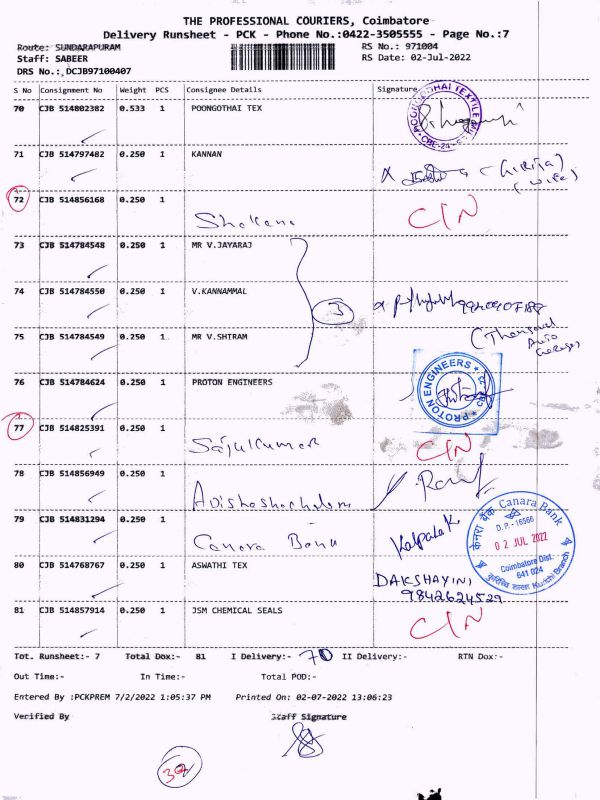 THE PROFESSIONAL COURIERS, Coimbatore
Delivery Runsheet - PCK - Phone No.:0422-3505555 - Page No.:7
Route: SUNDARAPURAM RS No.: 971004
Staff: SABEER RS Date: 02-Jul-2022
DRS No.: DCJB97100407
S No Consignment No Weight PCS Consignee Details Signature
70 CJB 514802382 0.533 1 POONGOTHAI TEX
71 CJB 514797482 0.250 1 KANNAN
(Wife)
72 CJB 514856168 0.250 1 C/N
73 CJB 514784548 0.250 1 MR V.JAYARAJ
74 CJB 514784550 0.250 1 V.KANNAMMAL 3
75 CJB 514784549 0.250 1 MR V.SHTRAM
76 CJB 514784624 0.250 1 PROTON ENGINEERS PROTON ENGINEERS
77 CJB 514825391 0.250 1 Sajukumar C/N
78 CJB 514856949 0.250 1
79 CJB 514831294 0.250 1 Canara Bank Kalpala K
केनरा बैंक Canara Bank
D.P.-16566
02 JUL 2022
Coimbatore Dist.
641 024
Kurichi Branch
80 CJB 514768767 0.250 1 ASWATHI TEX DAKSHAYINI
9842624529
81 CJB 514857914 0.250 1 JSM CHEMICAL SEALS C/N
Tot. Runsheet:- 7 Total Dox:- 81 I Delivery:- 70 II Delivery:- RTN Dox:-
Out Time:- In Time:- Total POD:-
Entered By :PCKPREM 7/2/2022 1:05:37 PM Printed On: 02-07-2022 13:06:23
Verified By Staff Signature